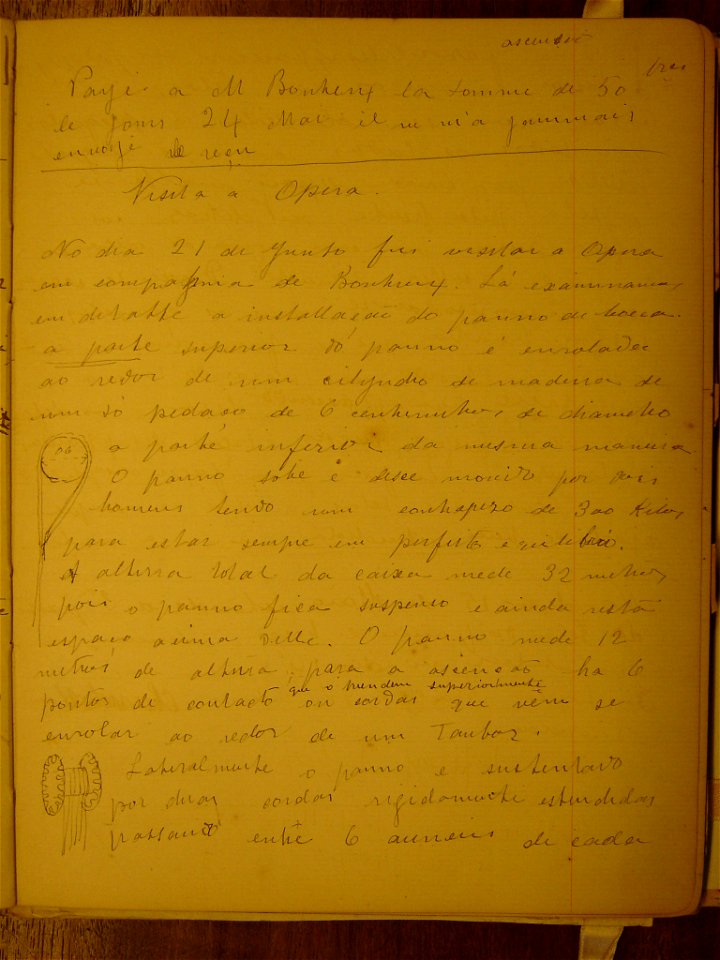 ascensão
Payé a M Bonheux la somme de 50 frcs
le jour 24 Mai il ne m'a jammais
envoyé le reçu
Visita a Opera.
No dia 21 de Junho fui visitar a Opera
em compahnia de Bonheux. Lá examinamos
em detalhe a installação do panno de bocca.
a parte superior do panno é enrolada
ao redor de um cilyndro de madeira de
um só pedaço de 6 centimetros de diametro
a parte inferior da mesma maneira
O panno sobe e desce movido por dois
homens tendo um contrapezo de 300 Kilos
para estar sempre em perfeito equilibrio.
A altura total da caixa mede 32 metros,
pois o panno fica suspenso e ainda resta
espaço acima delle. O panno mede 12
metros de altura. para a ascensão ha 6
pontos de contacto que o prendem superiormente
ou cordas que vêm se
enrolar ao redor de um Tambor.
Lateralmente o panno é sustentado
por duas cordas rigidamente estendidas
passando entre 6 anneis de cada